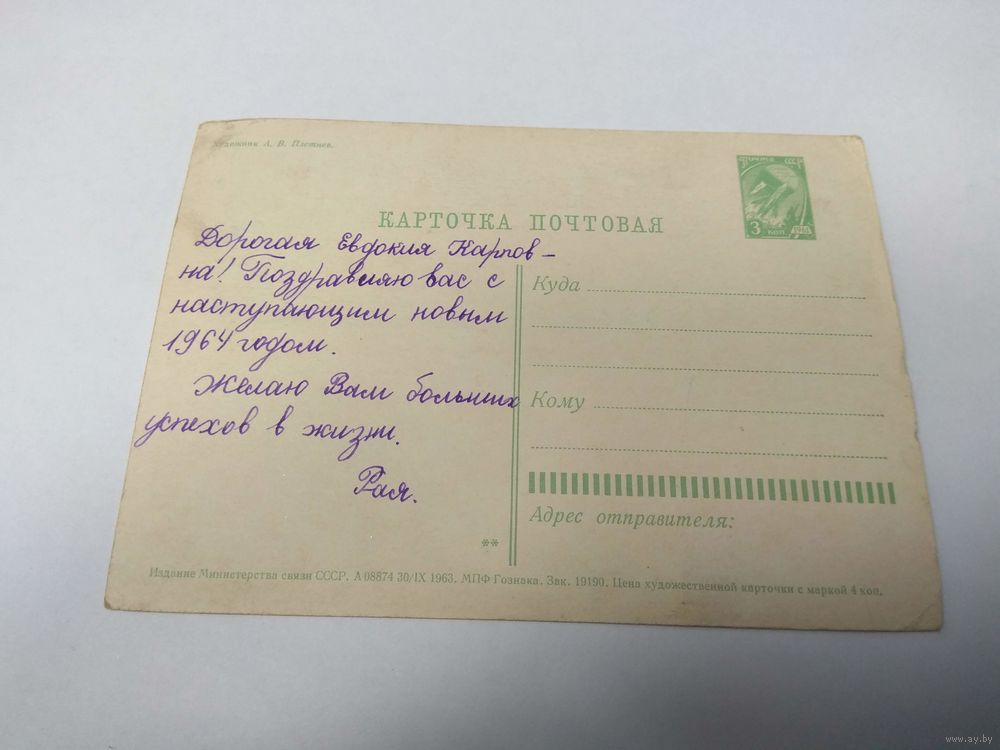 Художник А. В. Плетнев.
ПОЧТА СССР
3 коп 1961
КАРТОЧКА ПОЧТОВАЯ
Дорогая Евдокия Карпов-
на! Поздравляю вас с
наступающим новым
1964 годом.
Желаю Вам больших
успехов в жизни.
Рая.
**
Куда
Кому
Адрес отправителя:
Издание Министерства связи СССР. А 08874 30/IX 1963. МПФ Гознака. Зак. 19190. Цена художественной карточки с маркой 4 коп.
www.ay.by